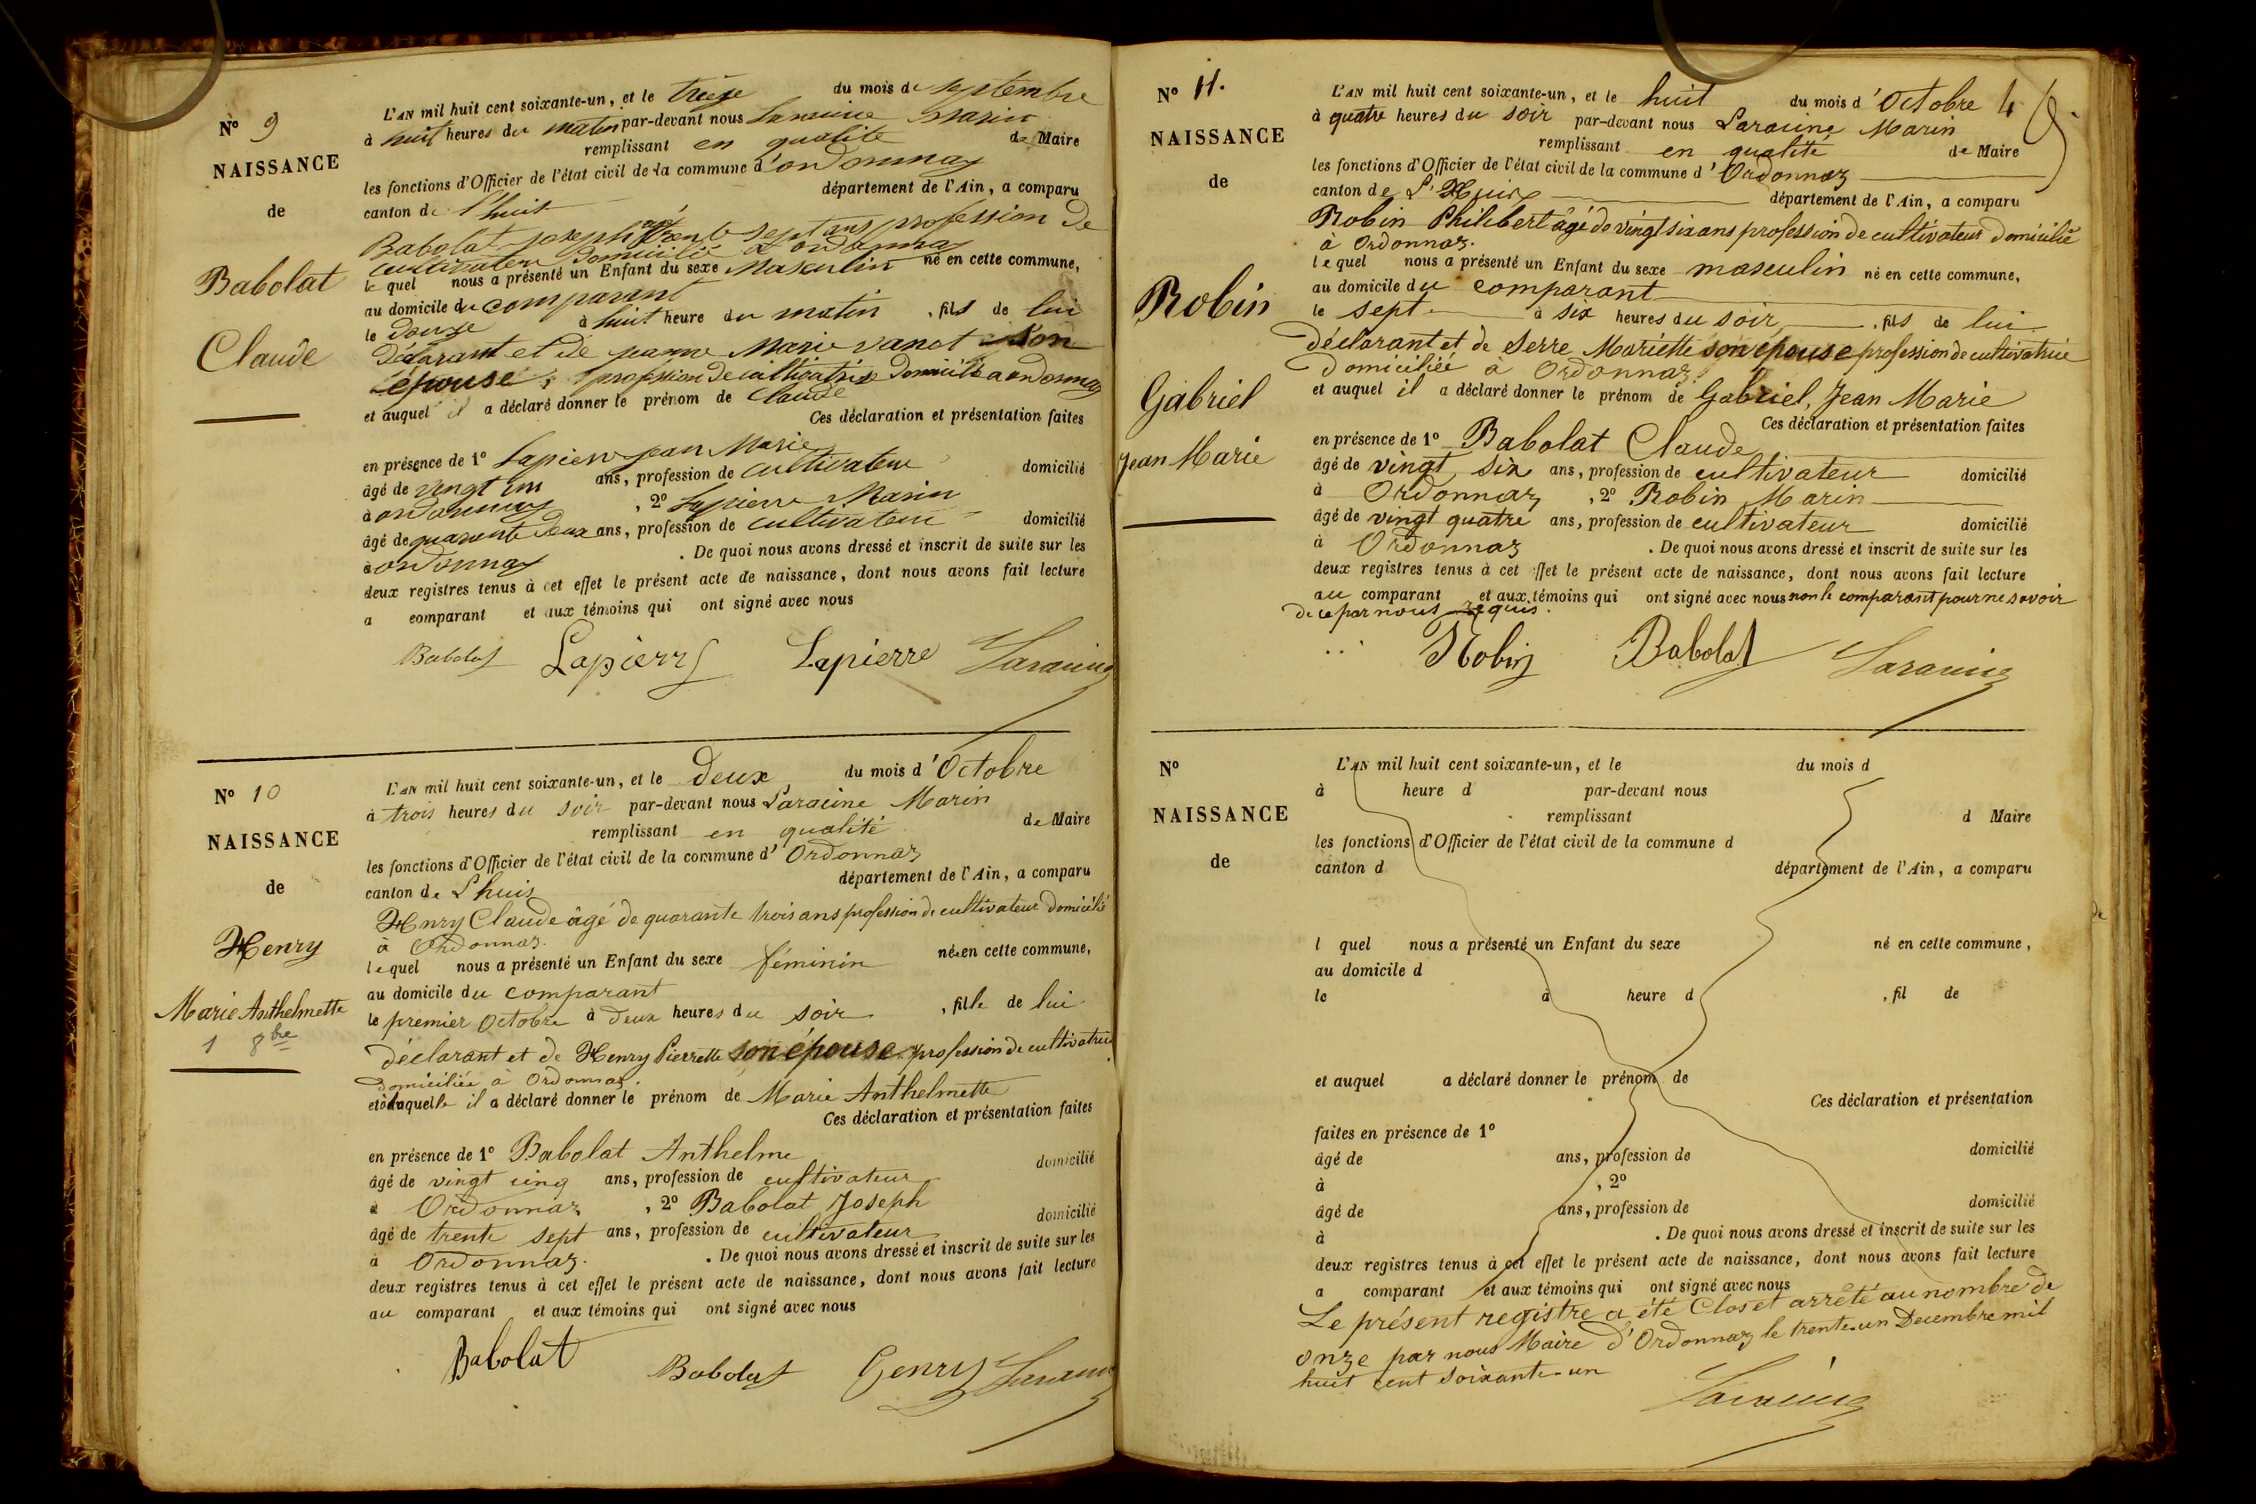 N° 9
NAISSANCE
de
Babolat
Claude
L'AN mil huit cent soixante-un, et le treize du mois de septembre
à huit heures du matin par-devant nous Laracine Marin
remplissant en qualité de Maire
les fonctions d'Officier de l'état civil de la commune d'ordonnaz
canton de l'huit département de l'Ain, a comparu
Babolat joseph agé trente sept ans profession de
cultivateur domicilié a ordonnaz
le quel nous a présenté un Enfant du sexe Masculin né en cette commune,
au domicile du comparant
le douze à huit heure du matin , fils de lui
déclarant et de jeanne Marie vanot son
épouse, profession de cultivatrice domicilié a ordonnaz
et auquel il a déclaré donner le prénom de Claude
Ces déclaration et présentation faites
en présence de 1° Lapierre jean Marie
âgé de vingt un ans, profession de cultivateur domicilié
à ordonnaz , 2° Lapierre Marin
âgé de quarente deux ans, profession de cultivateur domicilié
à ordonnaz . De quoi nous avons dressé et inscrit de suite sur les
deux registres tenus à cet effet le présent acte de naissance, dont nous avons fait lecture
a comparant et aux témoins qui ont signé avec nous
Babolat Lapierre Lapierre Laracine
N° 10
NAISSANCE
de
Henry
Marie Anthelmette
1 8bre
L'AN mil huit cent soixante-un, et le deux du mois d'Octobre
à trois heures du soir par-devant nous Laracine Marin
remplissant en qualité de Maire
les fonctions d'Officier de l'état civil de la commune d'Ordonnaz
canton de L'huis département de l'Ain, a comparu
Henry Claude âgé de quarante trois ans profession de cultivateur domicilié
à Ordonnaz.
lequel nous a présenté un Enfant du sexe féminin née en cette commune,
au domicile du comparant
le premier Octobre à deux heures du soir , fille de lui
déclarant et de Henry Pierrette son épouse profession de cultivatrice
domiciliée à Ordonnaz.
et à laquelle il a déclaré donner le prénom de Marie Anthelmette
Ces déclaration et présentation faites
en présence de 1° Babolat Anthelme
âgé de vingt cinq ans, profession de cultivateur domicilié
à Ordonnaz , 2° Babolat Joseph
âgé de trente sept ans, profession de cultivateur domicilié
à Ordonnaz. . De quoi nous avons dressé et inscrit de suite sur les
deux registres tenus à cet effet le présent acte de naissance, dont nous avons fait lecture
au comparant et aux témoins qui ont signé avec nous
Babolat Babolat Henry Laracine
N° 11.
NAISSANCE
de
Robin
Gabriel
Jean Marie
L'AN mil huit cent soixante-un, et le huit du mois d'Octobre
à quatre heures du soir par-devant nous Laracine Marin
remplissant en qualité de Maire
les fonctions d'Officier de l'état civil de la commune d'Ordonnaz
canton de L'Huis département de l'Ain, a comparu
Robin Philibert âgé de vingt six ans profession de cultivateur domicilié
à Ordonnaz.
lequel nous a présenté un Enfant du sexe masculin né en cette commune,
au domicile du comparant
le sept à six heures du soir , fils de lui
déclarant et de Serre Mariette son épouse profession de cultivatrice
domiciliée à Ordonnaz.
et auquel il a déclaré donner le prénom de Gabriel, Jean Marie
Ces déclaration et présentation faites
en présence de 1° Babolat Claude
âgé de vingt six ans, profession de cultivateur domicilié
à Ordonnaz , 2° Robin Marin
âgé de vingt quatre ans, profession de cultivateur domicilié
à Ordonnaz . De quoi nous avons dressé et inscrit de suite sur les
deux registres tenus à cet effet le présent acte de naissance, dont nous avons fait lecture
au comparant et aux témoins qui ont signé avec nous non le comparant pour ne savoir
de ce par nous requis.
Robin Babolat Laracine
N°
NAISSANCE
de
L'AN mil huit cent soixante-un, et le du mois d
à heure d par-devant nous
remplissant d Maire
les fonctions d'Officier de l'état civil de la commune d
canton d département de l'Ain, a comparu
l quel nous a présenté un Enfant du sexe né en cette commune,
au domicile d
le à heure d , fil de
et auquel a déclaré donner le prénom de
Ces déclaration et présentation
faites en présence de 1°
âgé de ans, profession de domicilié
à , 2°
âgé de ans, profession de domicilié
à . De quoi nous avons dressé et inscrit de suite sur les
deux registres tenus à cet effet le présent acte de naissance, dont nous avons fait lecture
a comparant et aux témoins qui ont signé avec nous
Le présent registre a été Clos et arrêté au nombre de
onze par nous Maire d'Ordonnaz le trente-un Decembre mil
huit cent soixante-un
Laracine